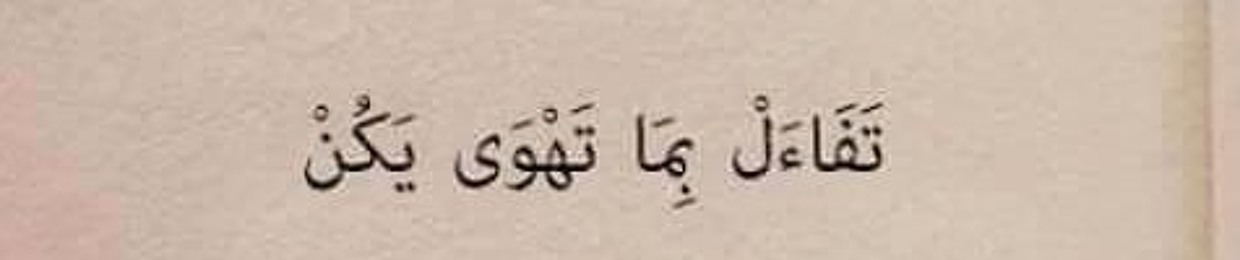 تَفَاءَلْ بِمَا تَهْوَى يَكُنْ